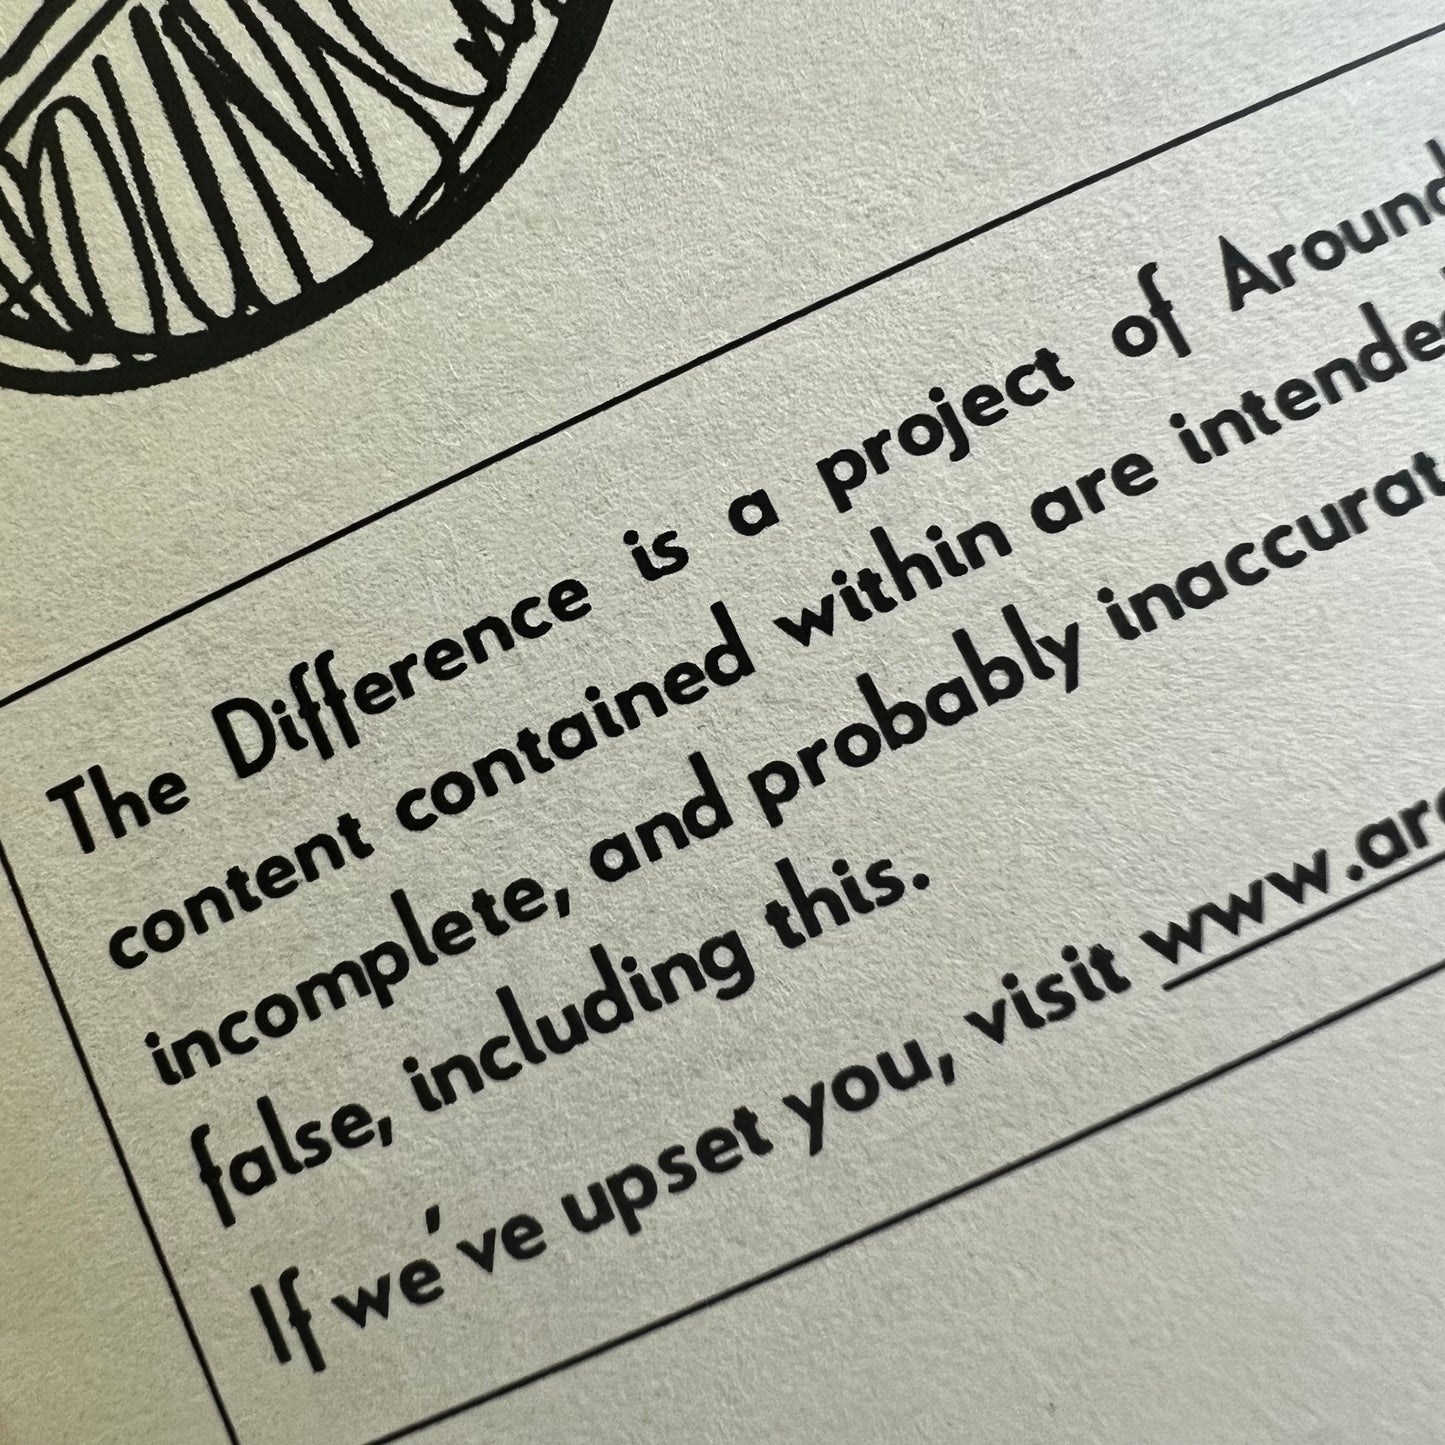 The Difference is a project of Around
content contained within are intended
incomplete, and probably inaccurat
false, including this.
If we've upset you, visit www.aro